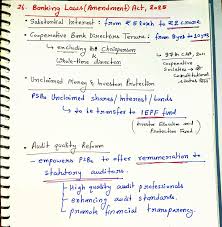 26. Banking Laws (Amendment) Act, 2025
• Substantial Interest : from ₹5 lakh to ₹2 crore
• Cooperative Bank Directors Tenure : from 8 yrs to 10 yrs
↳ excluding Chairperson
&
Whole-time director
→ 97th CAA, 2011
Cooperative
Societies →
Constitutional
status
• Unclaimed Money & Investor Protection
PSBs Unclaimed shares / interest / bonds
↳ to be transfer to IEPF fund
(Investor Education and
Protection Fund)
• Audit quality Reform
— empowers PSBs to offer remuneration to
statutory auditors.
high quality audit professionals
enhancing audit standards.
promote financial transparency.